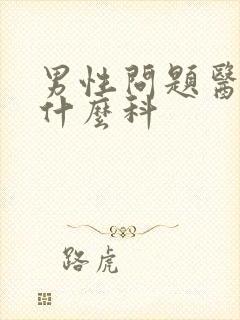 男性問題醫
什麼科
路虎